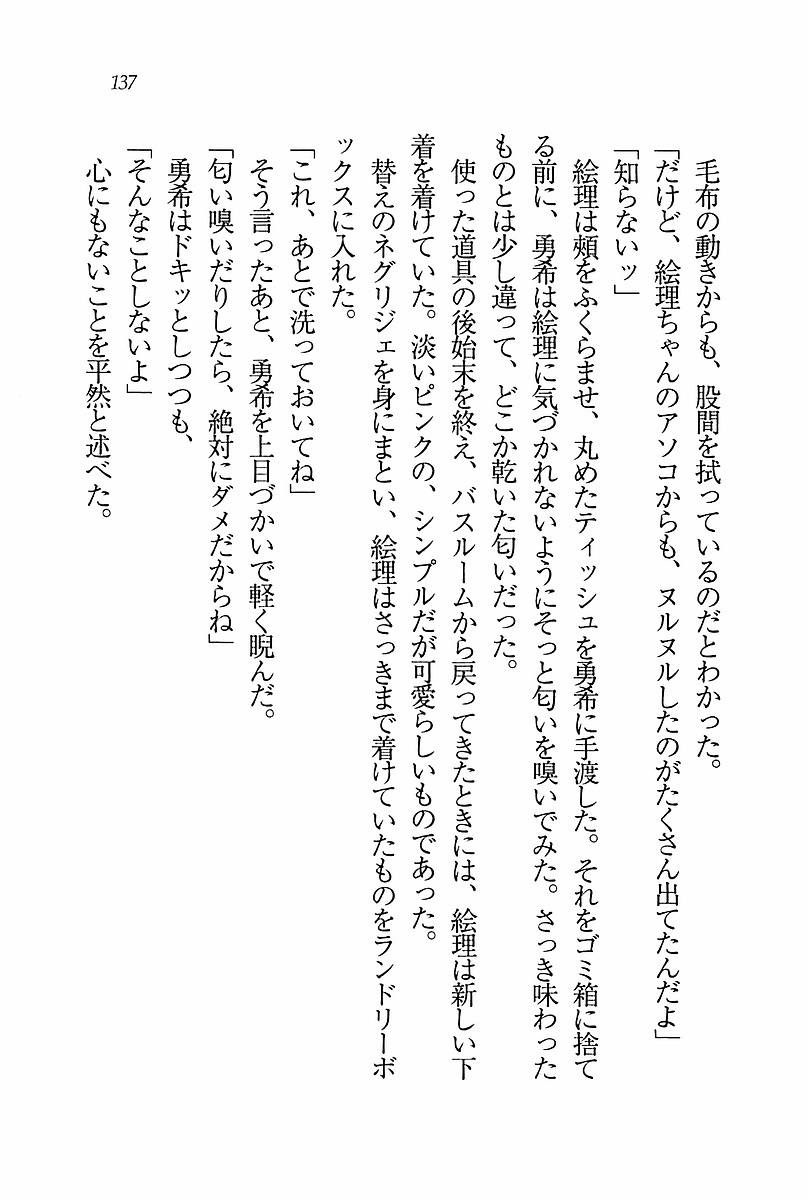 137
毛布の動きからも、股間を拭っているのだとわかった。
「だけど、絵理ちゃんのアソコからも、ヌルヌルしたのがたくさん出てたんだよ」
「知らないッ」
絵理は頰をふくらませ、丸めたティッシュを勇希に手渡した。それをゴミ箱に捨て
る前に、勇希は絵理に気づかれないようにそっと匂いを嗅いでみた。さっき味わった
ものとは少し違って、どこか乾いた匂いだった。
使った道具の後始末を終え、バスルームから戻ってきたときには、絵理は新しい下
着を着けていた。淡いピンクの、シンプルだが可愛らしいものであった。
替えのネグリジェを身にまとい、絵理はさっきまで着けていたものをランドリーボ
ックスに入れた。
「これ、あとで洗っておいてね」
そう言ったあと、勇希を上目づかいで軽く睨んだ。
「匂い嗅いだりしたら、絶対にダメだからね」
勇希はドキッとしつつも、
「そんなことしないよ」
心にもないことを平然と述べた。